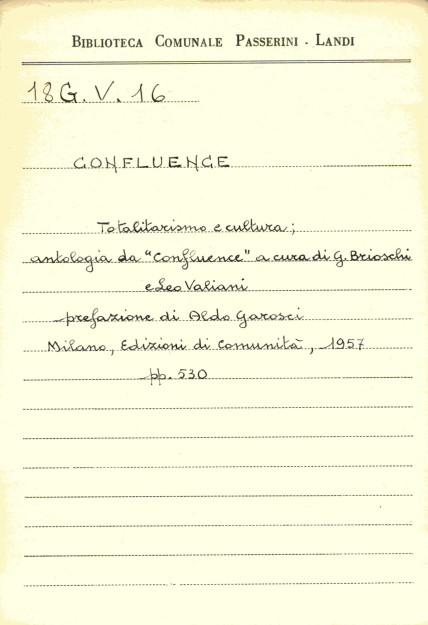 BIBLIOTECA COMUNALE PASSERINI - LANDI
18 G. V. 16
CONFLUENCE
Totalitarismo e cultura;
antologia da "Confluence" a cura di G. Brioschi
e Leo Valiani
prefazione di Aldo Garosci
Milano, Edizioni di Comunità, 1957
pp. 530